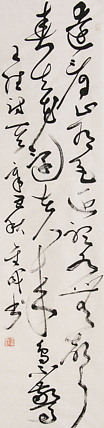 遠看山有色近聽水無聲
春去花還在人來鳥不驚
王維詩
秋
書